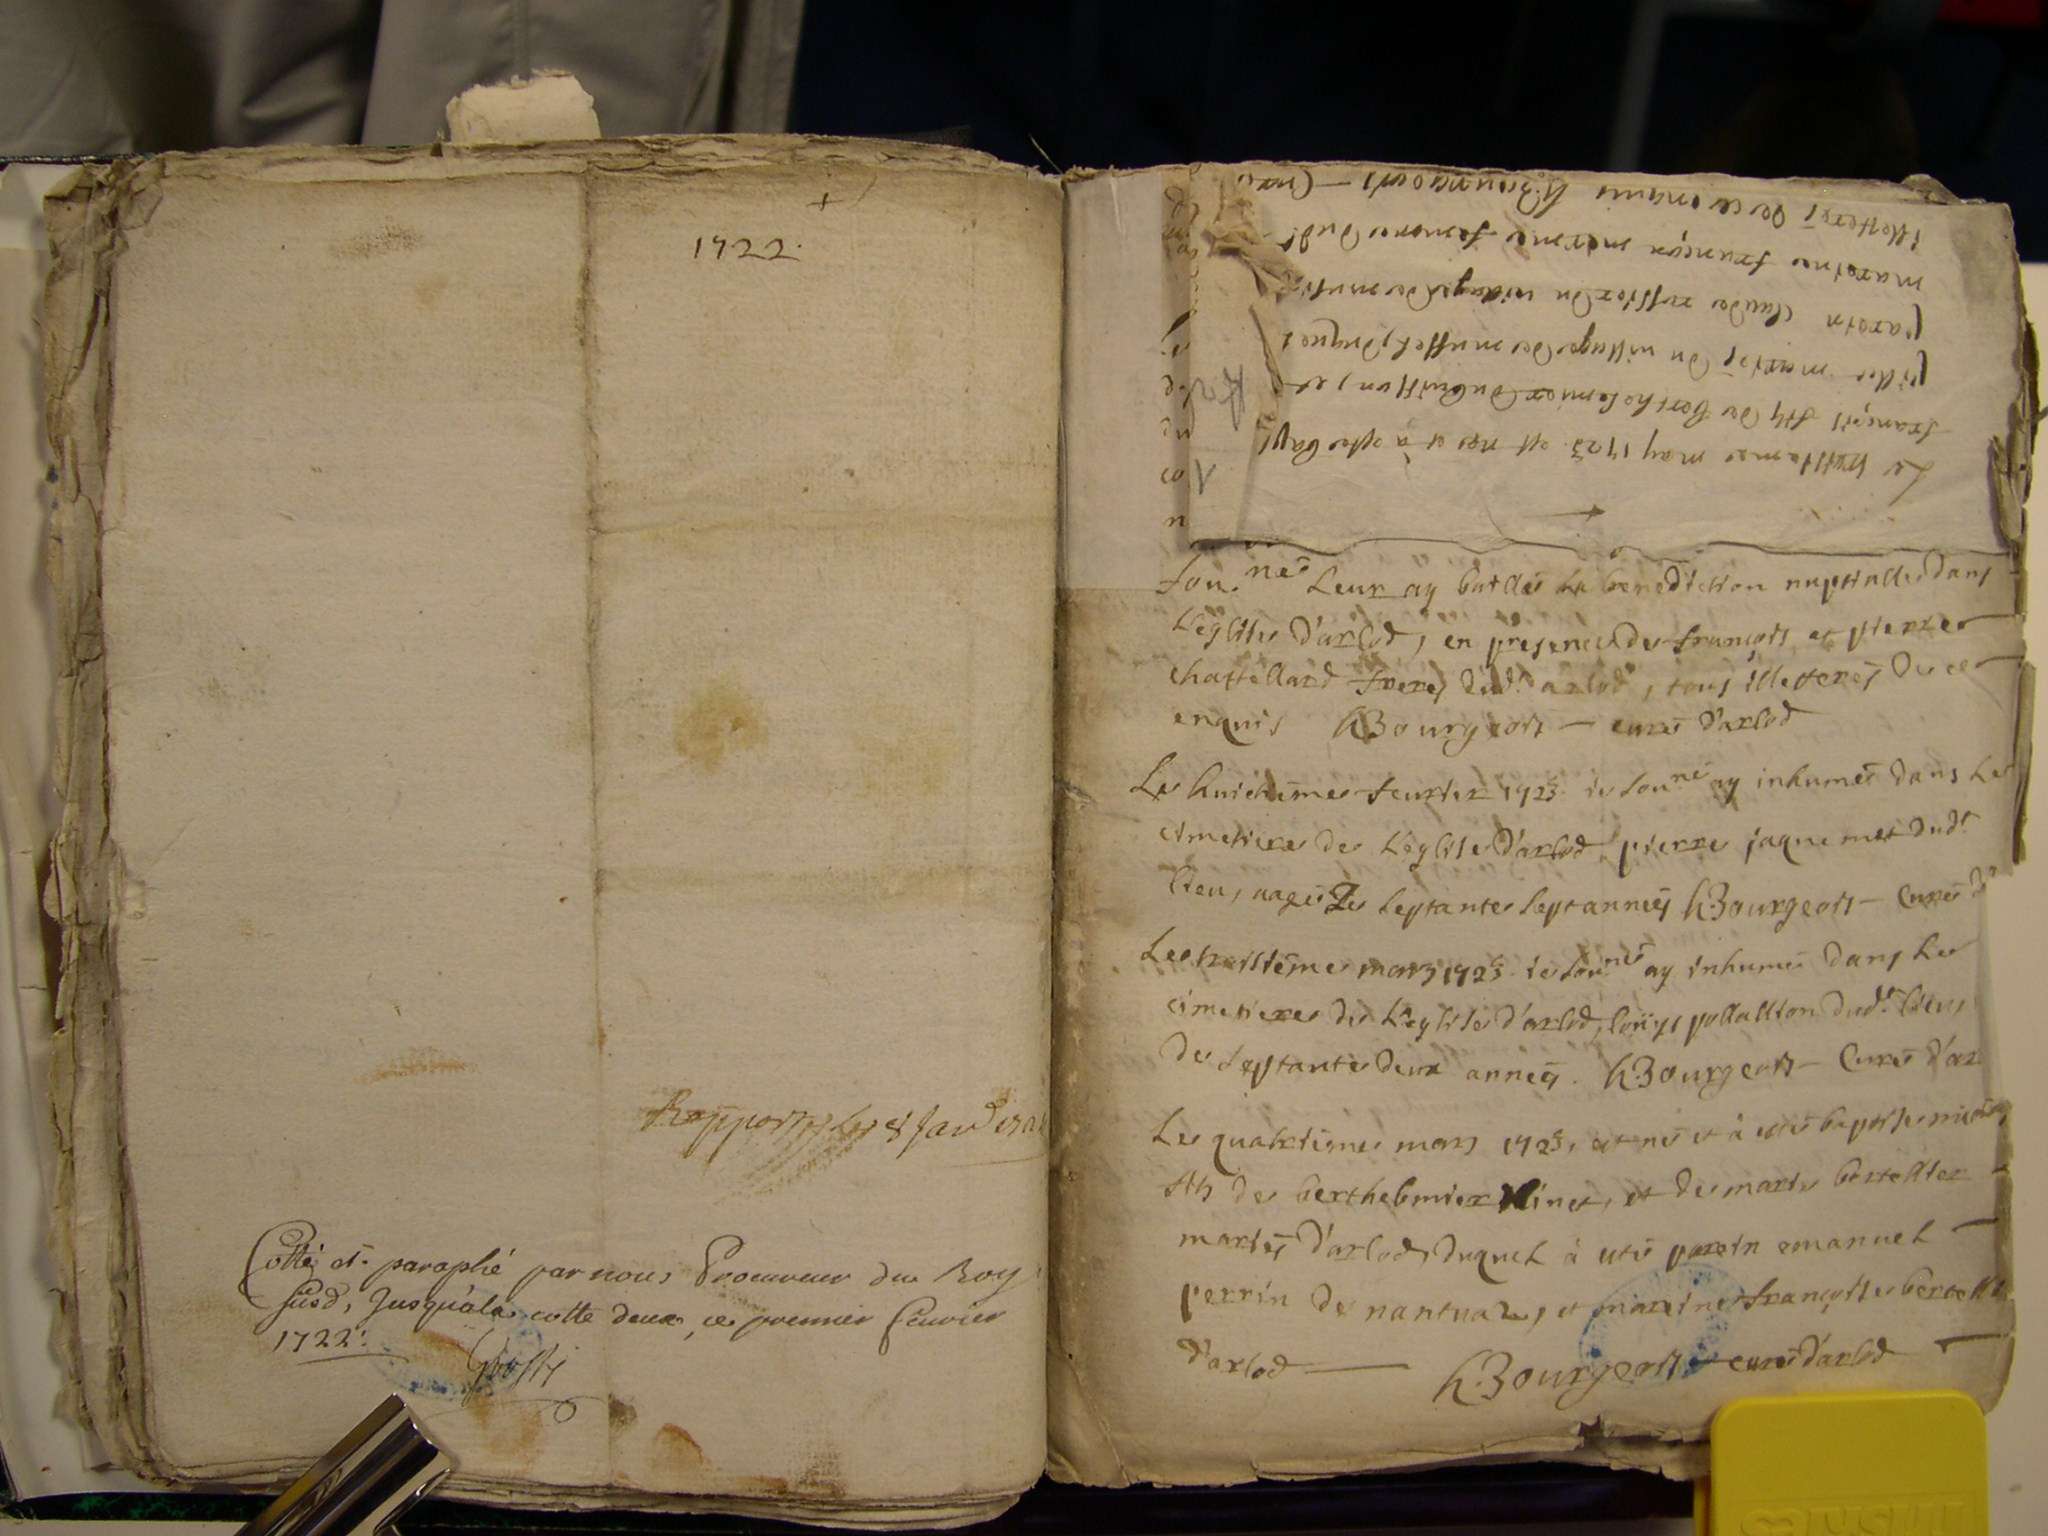 1722.
Rapporté le 8 Janv
Cotté et paraphé par nous Procureur du Roy
susd, Jusqu'a la cotte deux, ce premier feuvrier
1722.
Le huittieme may 1723. est né et à esté bapt
françois fils de berthelemier du buisson, et
fille mariés du village de mussel, duquel
parain claude du village de
maraine françoise femme dud.t
illetterés de ce enquis h. Bourgeois – Curé
sou.né leur ay baillé la benediction nuptialle dans
l'eglise d'arlod, en presence de françois et pierre
chastellard freres dud.t arlod, tous illetterés de ce
enquis h Bourgeois – curé d'arlod
Le huictieme feurier 1723 ie sou.né ay inhumé dans le
cimetiere de l'eglise d'arlod pierre jaquemet dud.t
lieu, aagé de septante sept années h. Bourgeois – Curé d'
Le troisieme mars 1723 ie sou.né ay inhumé dans le
cimetiere de l'eglise d'arlod, loüys pollallion dud.t lieu,
de septante deux années. h. Bourgeois – Curé d'ar
Le quatrieme mars 1723, est né et à esté baptisé
fils de berthelemier et de marie bertellier
mariés d'arlod, duquel à esté parain emanuel
perrin de nantua et maraine françoise
d'arlod — h. Bourgeois – curé d'arlod